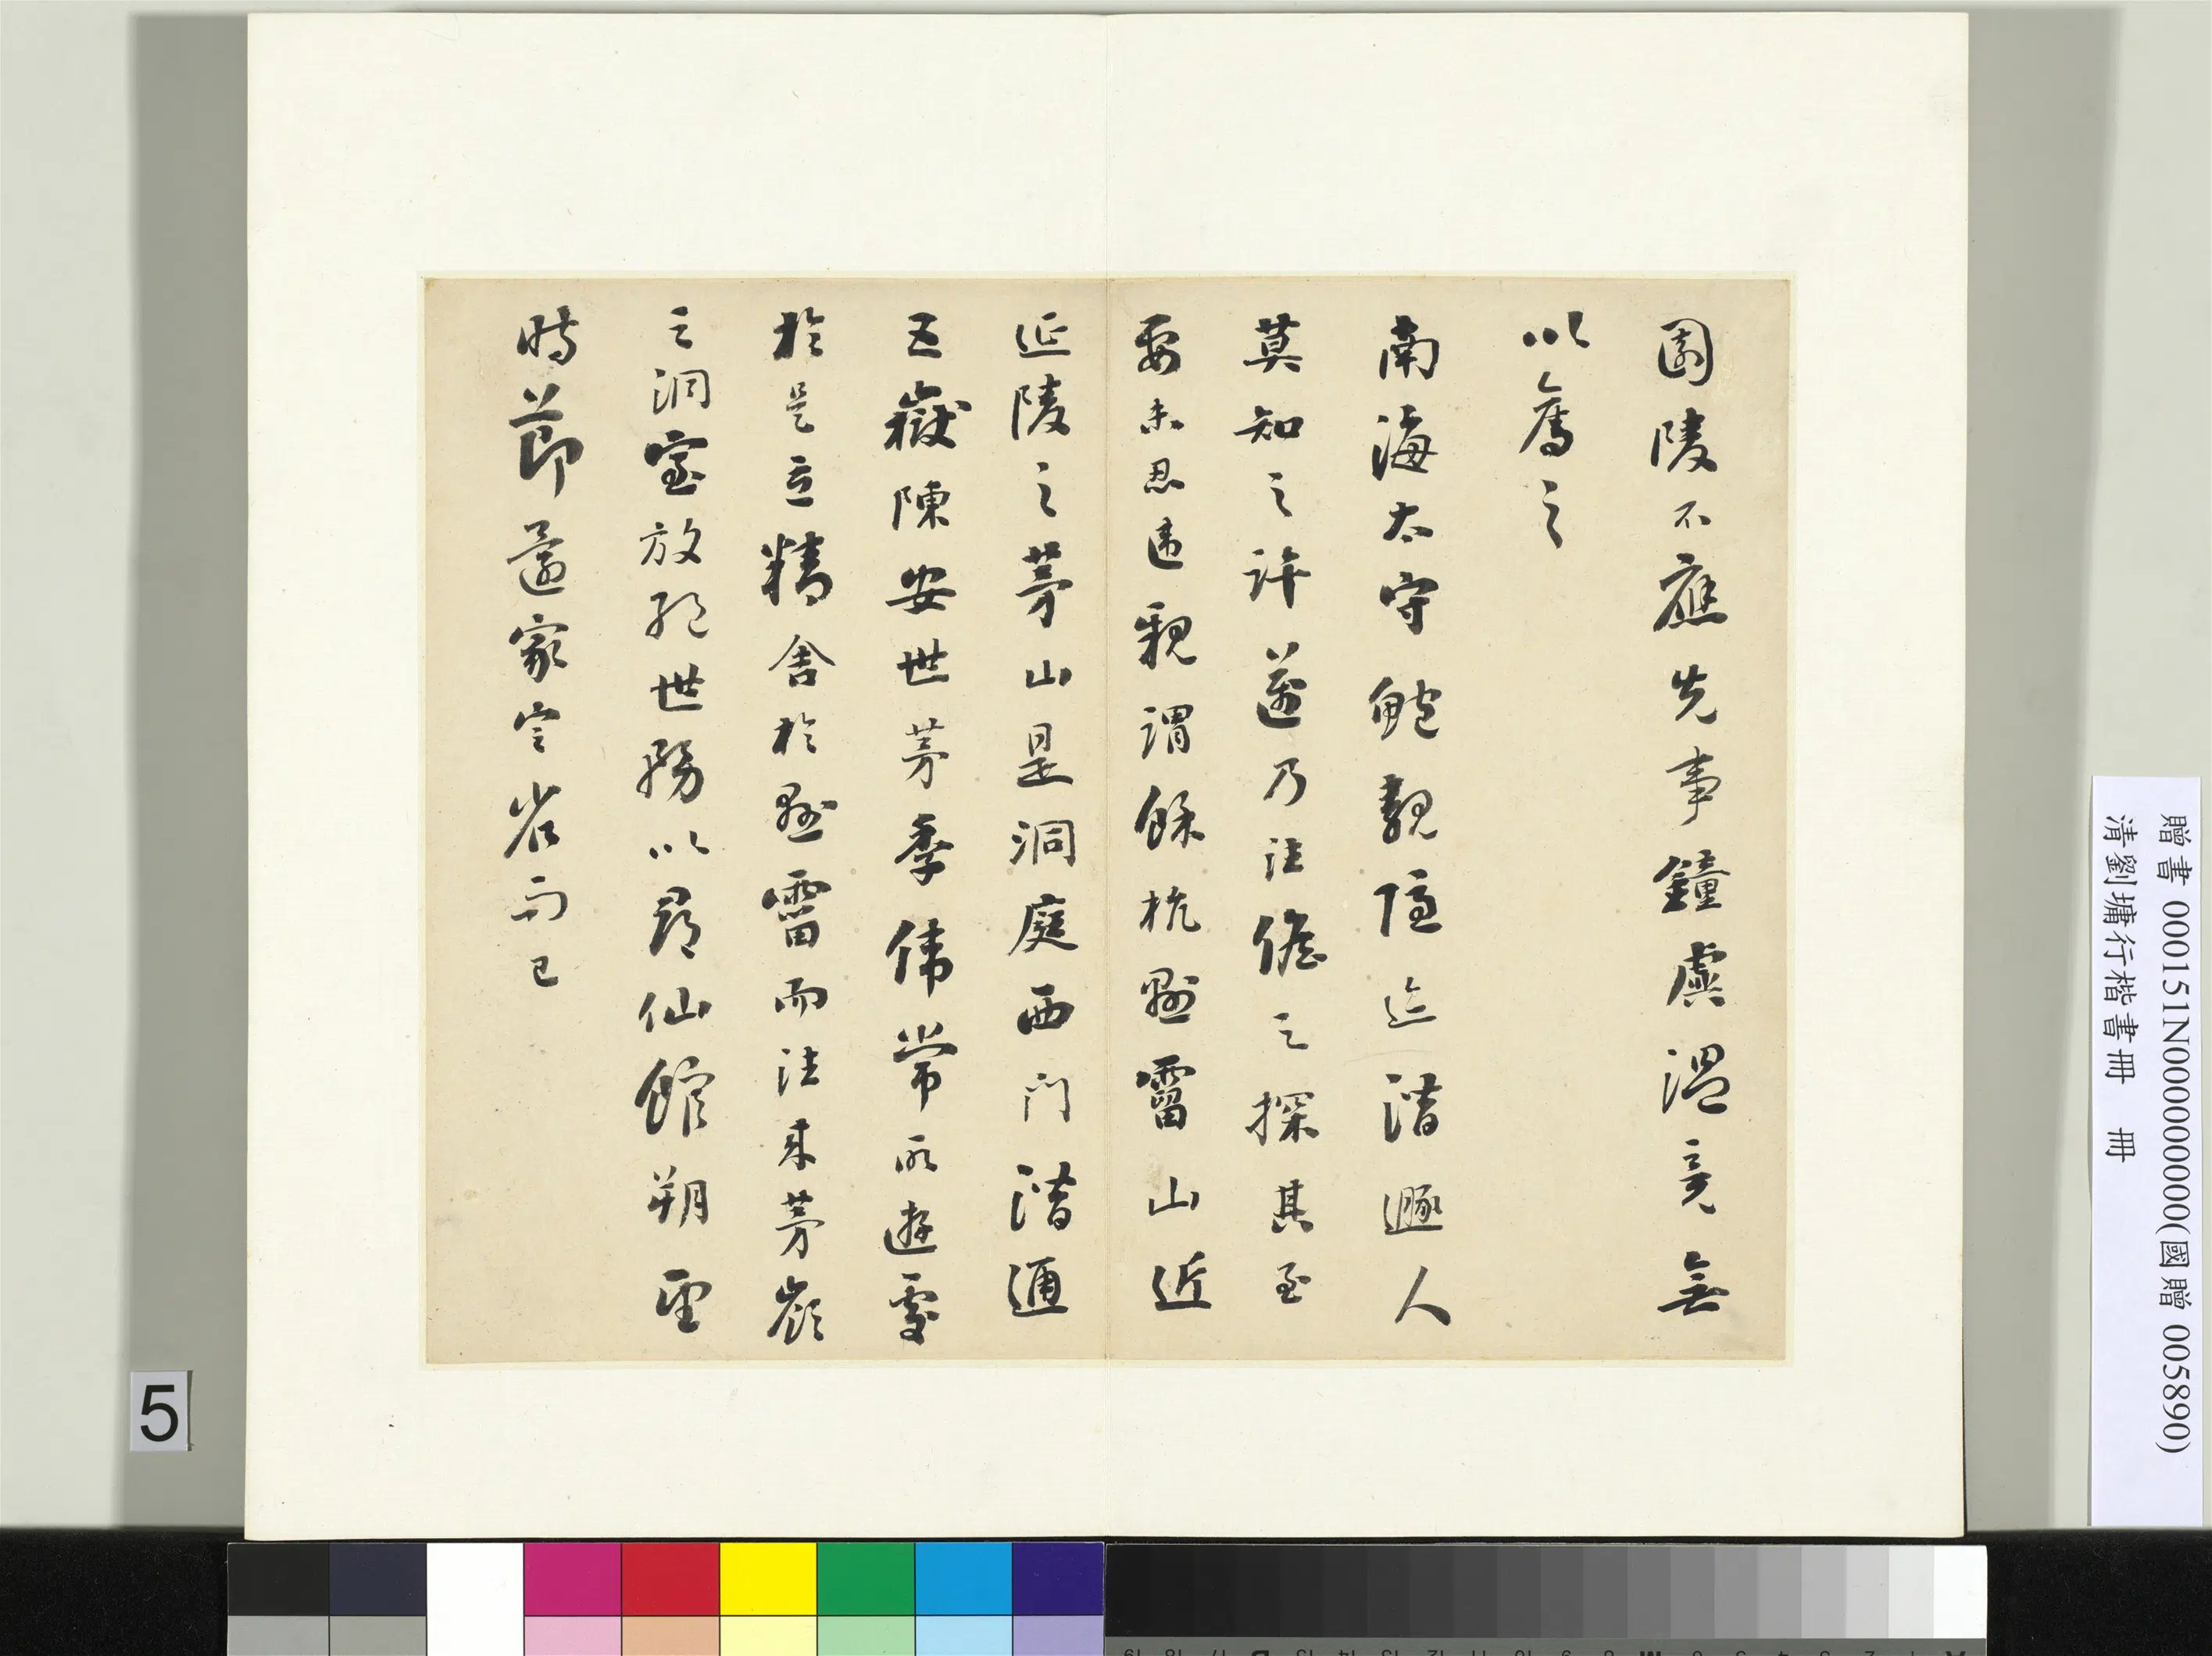 園陵不應先事鐘虡溫竟無
以奪之
南海太守鮑靚隱迹潛遯人
莫知之許邁乃往候之探其至
要未忍違親謂餘杭懸霤山近
延陵之茅山是洞庭西門潛通
五嶽陳安世茅季偉常所遊處
於是立精舍於懸霤而往來茅嶺
之洞室放絕世務以尋仙館朔望
時節還家定省而已
贈書 000151N000000000(國贈 005890)
清劉墉行楷書冊 冊
5